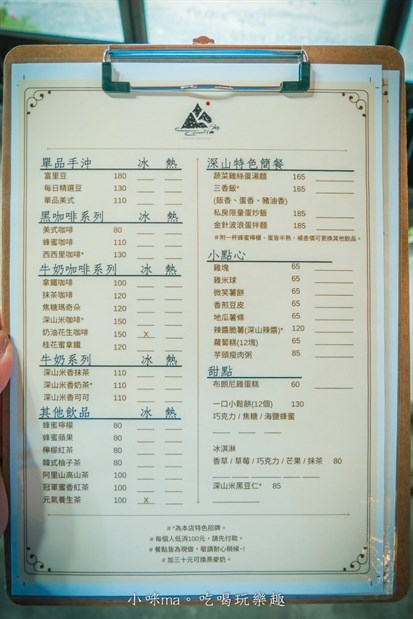 單品手沖 冰 熱
富里豆 180
每日精選豆 130
單品美式 110
黑咖啡系列 冰 熱
美式咖啡 80
蜂蜜咖啡 110
西西里咖啡* 130
牛奶咖啡系列 冰 熱
拿鐵咖啡 100
抹茶咖啡 120
焦糖瑪奇朵 120
深山米咖啡* 150
奶油花生咖啡 150 X
桂花蜜拿鐵 120
牛奶系列 冰 熱
深山米香抹茶 110
深山米香奶茶* 110
深山米香可可 110
其他飲品 冰 熱
蜂蜜檸檬 80
蜂蜜蘋果 80
檸檬紅茶 80
韓式柚子茶 80
阿里山高山茶 100
冠軍蜜香紅茶 100
元氣養生茶 100 X
深山特色簡餐
蔬菜雞絲蛋湯麵 165
三香飯* 165
(飯香、蛋香、豬油香)
私房限量蛋炒飯 185
金針波浪蛋拌麵 185
#附一杯蜂蜜檸檬、蛋皆半熟，補差價可更換其他飲品。
小點心
雞塊 65
雞米球 65
微笑薯餅 65
香煎豆皮 65
地瓜薯條 65
辣醬脆薯(深山辣醬)* 120
蘿蔔糕(12塊) 65
芋頭瘦肉粥 85
甜點
布朗尼雞蛋糕 60
一口小鬆餅(12個) 130
巧克力 / 焦糖 / 海鹽蜂蜜
冰淇淋
香草 / 草莓 / 巧克力 / 芒果 / 抹茶 80
深山米黑豆仁* 85
#*為本店特色招牌。
#每個人低消100元，請先付款。
#餐點皆為現做，敬請耐心稍候~!
#加三十元可換燕麥奶。
小咪ma。吃喝玩樂趣